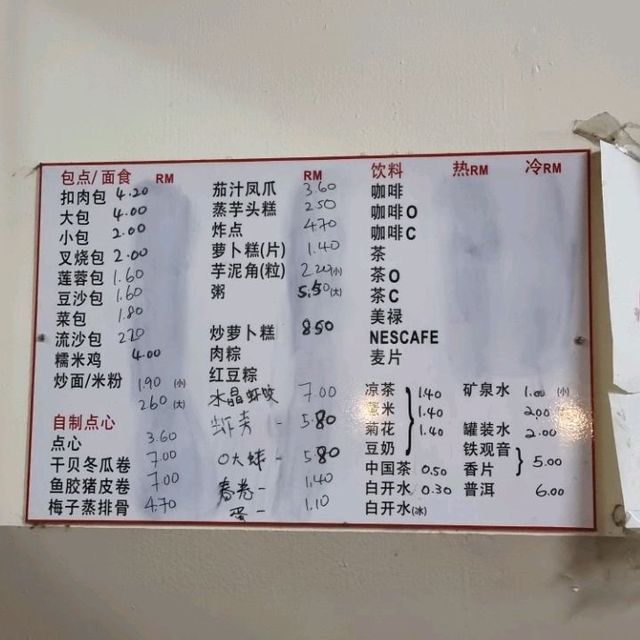 包点/面食 RM
扣肉包 4.20
大包 4.00
小包 2.00
叉烧包 2.00
莲蓉包 1.60
豆沙包 1.60
菜包 1.80
流沙包 220
糯米鸡 4.00
炒面/米粉 1.90 (小)
260 (大)
自制点心
点心 3.60
干贝冬瓜卷 7.00
鱼胶猪皮卷 7.00
梅子蒸排骨 4.70
RM
茄汁凤爪 3.60
蒸芋头糕 250
炸点 470
萝卜糕(片) 1.40
芋泥角(粒) 2.20(小)
粥 5.50(大)
炒萝卜糕 850
肉粽
红豆粽
水晶虾饺 7.00
虾 - 580
- 580
春卷 - 1.40
蛋 - 1.10
饮料 热RM 冷RM
咖啡
咖啡O
咖啡C
茶
茶O
茶C
美禄
NESCAFE
麦片
凉茶 1.40
薏米 1.40
菊花 1.40
豆奶
中国茶 0.50
白开水 0.30
白开水(冰)
矿泉水 1.00 (小)
200
罐装水 2.00
铁观音
香片 5.00
普洱 6.00